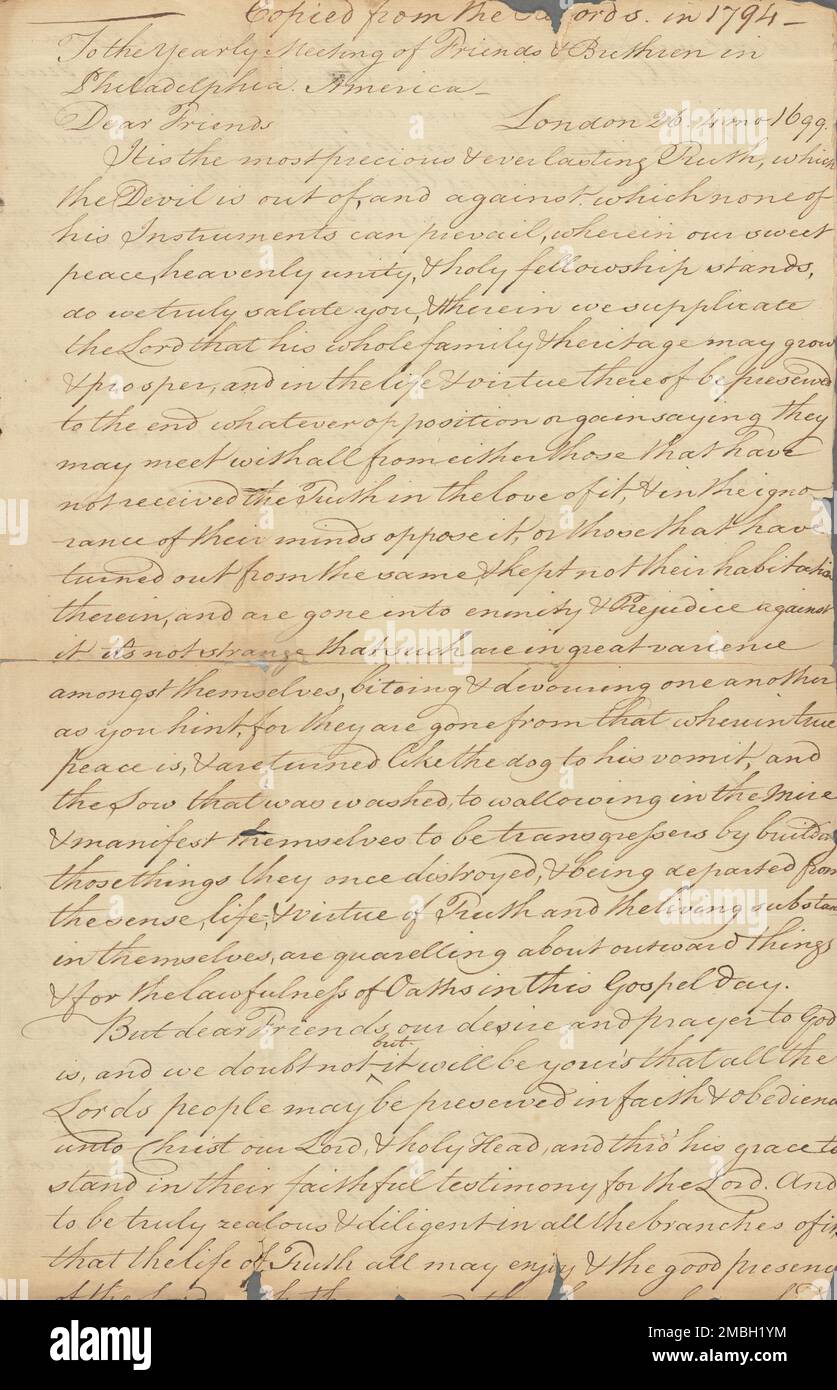 Copied from the Records. in 1794 –
To the Yearly Meeting of Friends & Buthren in
Philadelphia. America –
Dear Friends London 26. 4 mo 1699.
It is the most precious & everlasting Truth, which
the Devil is out of, and against which none of
his Instruments can prevail, wherein our sweet
peace, heavenly unity, & holy fellowship stands,
do we truly salute you, & therein we supplicate
the Lord that his whole family & heritage may grow
& prosper, and in the life & virtue there of be preserved
to the end whatever opposition or gainsaying they
may meet withall from either those that have
not received the Truth in the love of it, & in the igno-
rance of their minds oppose it, or those that have
turned out from the same, & kept not their habitation
therein, and are gone into enmity & Prejudice against
it its not strange that such are in great varience
amongst themselves, biteing & devouring one another
as you hint, for they are gone from that wherein true
peace is, & are turned like the dog to his vomit, and
the Sow that was washed, to wallowing in the Mire
& manifest themselves to be transgressers by building
those things they once distroyed, & being departed from
the sense, life, & virtue of Truth and the living substan
in themselves, are quarelling about outward things
& for the lawfulness of Oaths in this Gospel Day.
But dear Friends, our desire and prayer to God
is, and we doubt not but it will be your's that all the
Lords people may be preserved in faith & obedienc
unto Christ our Lord, & holy Head, and thro' his grace to
stand in their faithful testimony for the Lord. And
to be truly zealous & diligent in all the branches of it,
that the life of Truth all may enjoy & the good presenc
of the Lord
alamy
alamy
Image ID: 2MBH1YM
www.alamy.com